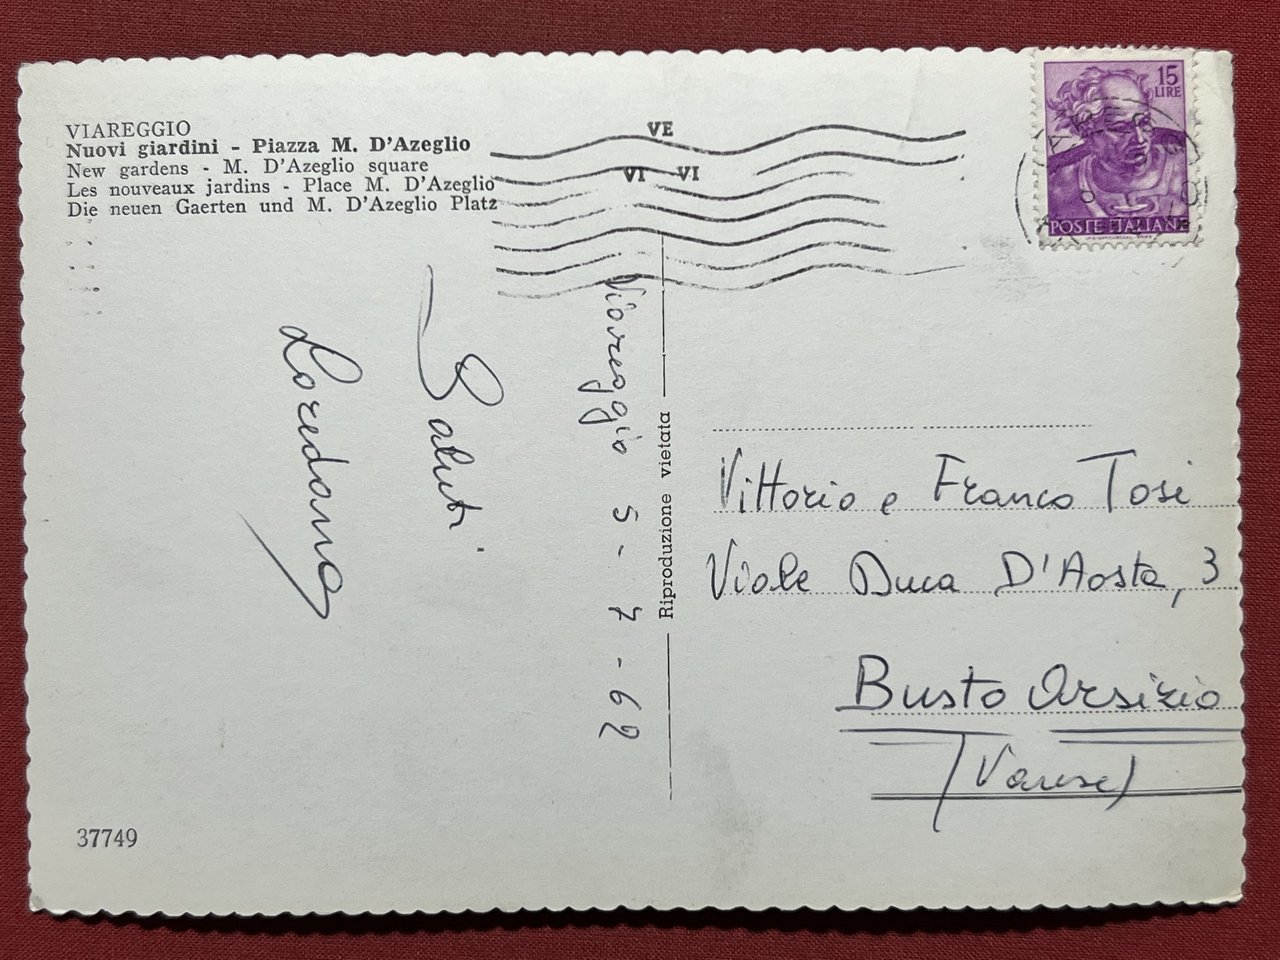 VIAREGGIO
Nuovi giardini - Piazza M. D'Azeglio
New gardens - M. D'Azeglio square
Les nouveaux jardins - Place M. D'Azeglio
Die neuen Gaerten und M. D'Azeglio Platz
VE
VI VI
15
LIRE
POSTE ITALIANE
Viareggio 5-7-62
Saluti
Loredana
Riproduzione vietata
Vittorio e Franco Tosi
Viale Duca D'Aosta, 3
Busto Arsizio
(Varese)
37749